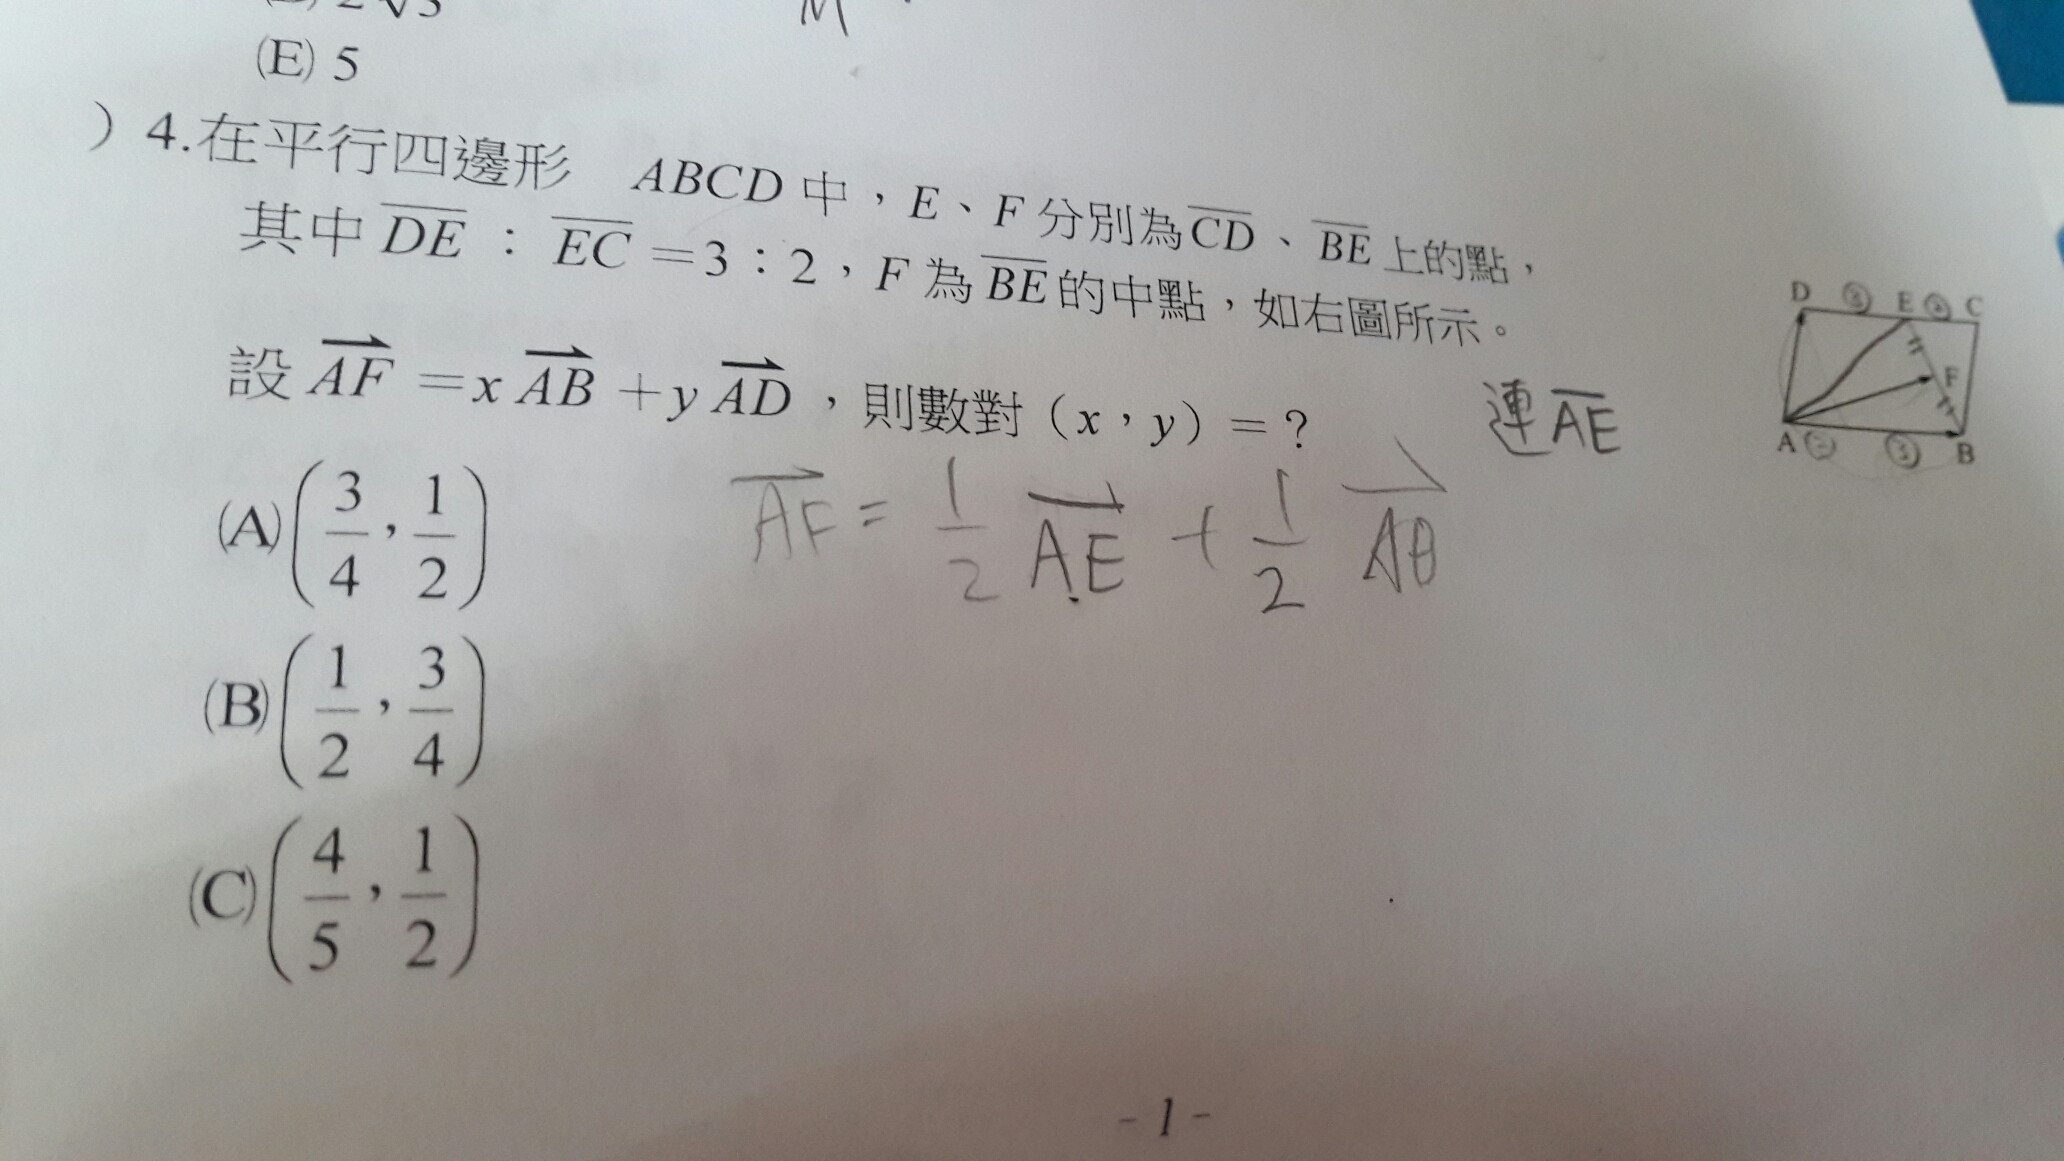 (E) 5
) 4.在平行四邊形 ABCD 中，E、F 分別為 CD、BE 上的點，
其中 DE : EC =3：2，F 為 BE 的中點，如右圖所示。
設 AF =x AB +y AD，則數對（x，y）=？
連AE
D ③ E ② C
F
A ③ B
AF = 1/2 AE + 1/2 AB
(A) (3/4, 1/2)
(B) (1/2, 3/4)
(C) (4/5, 1/2)
- 1 -